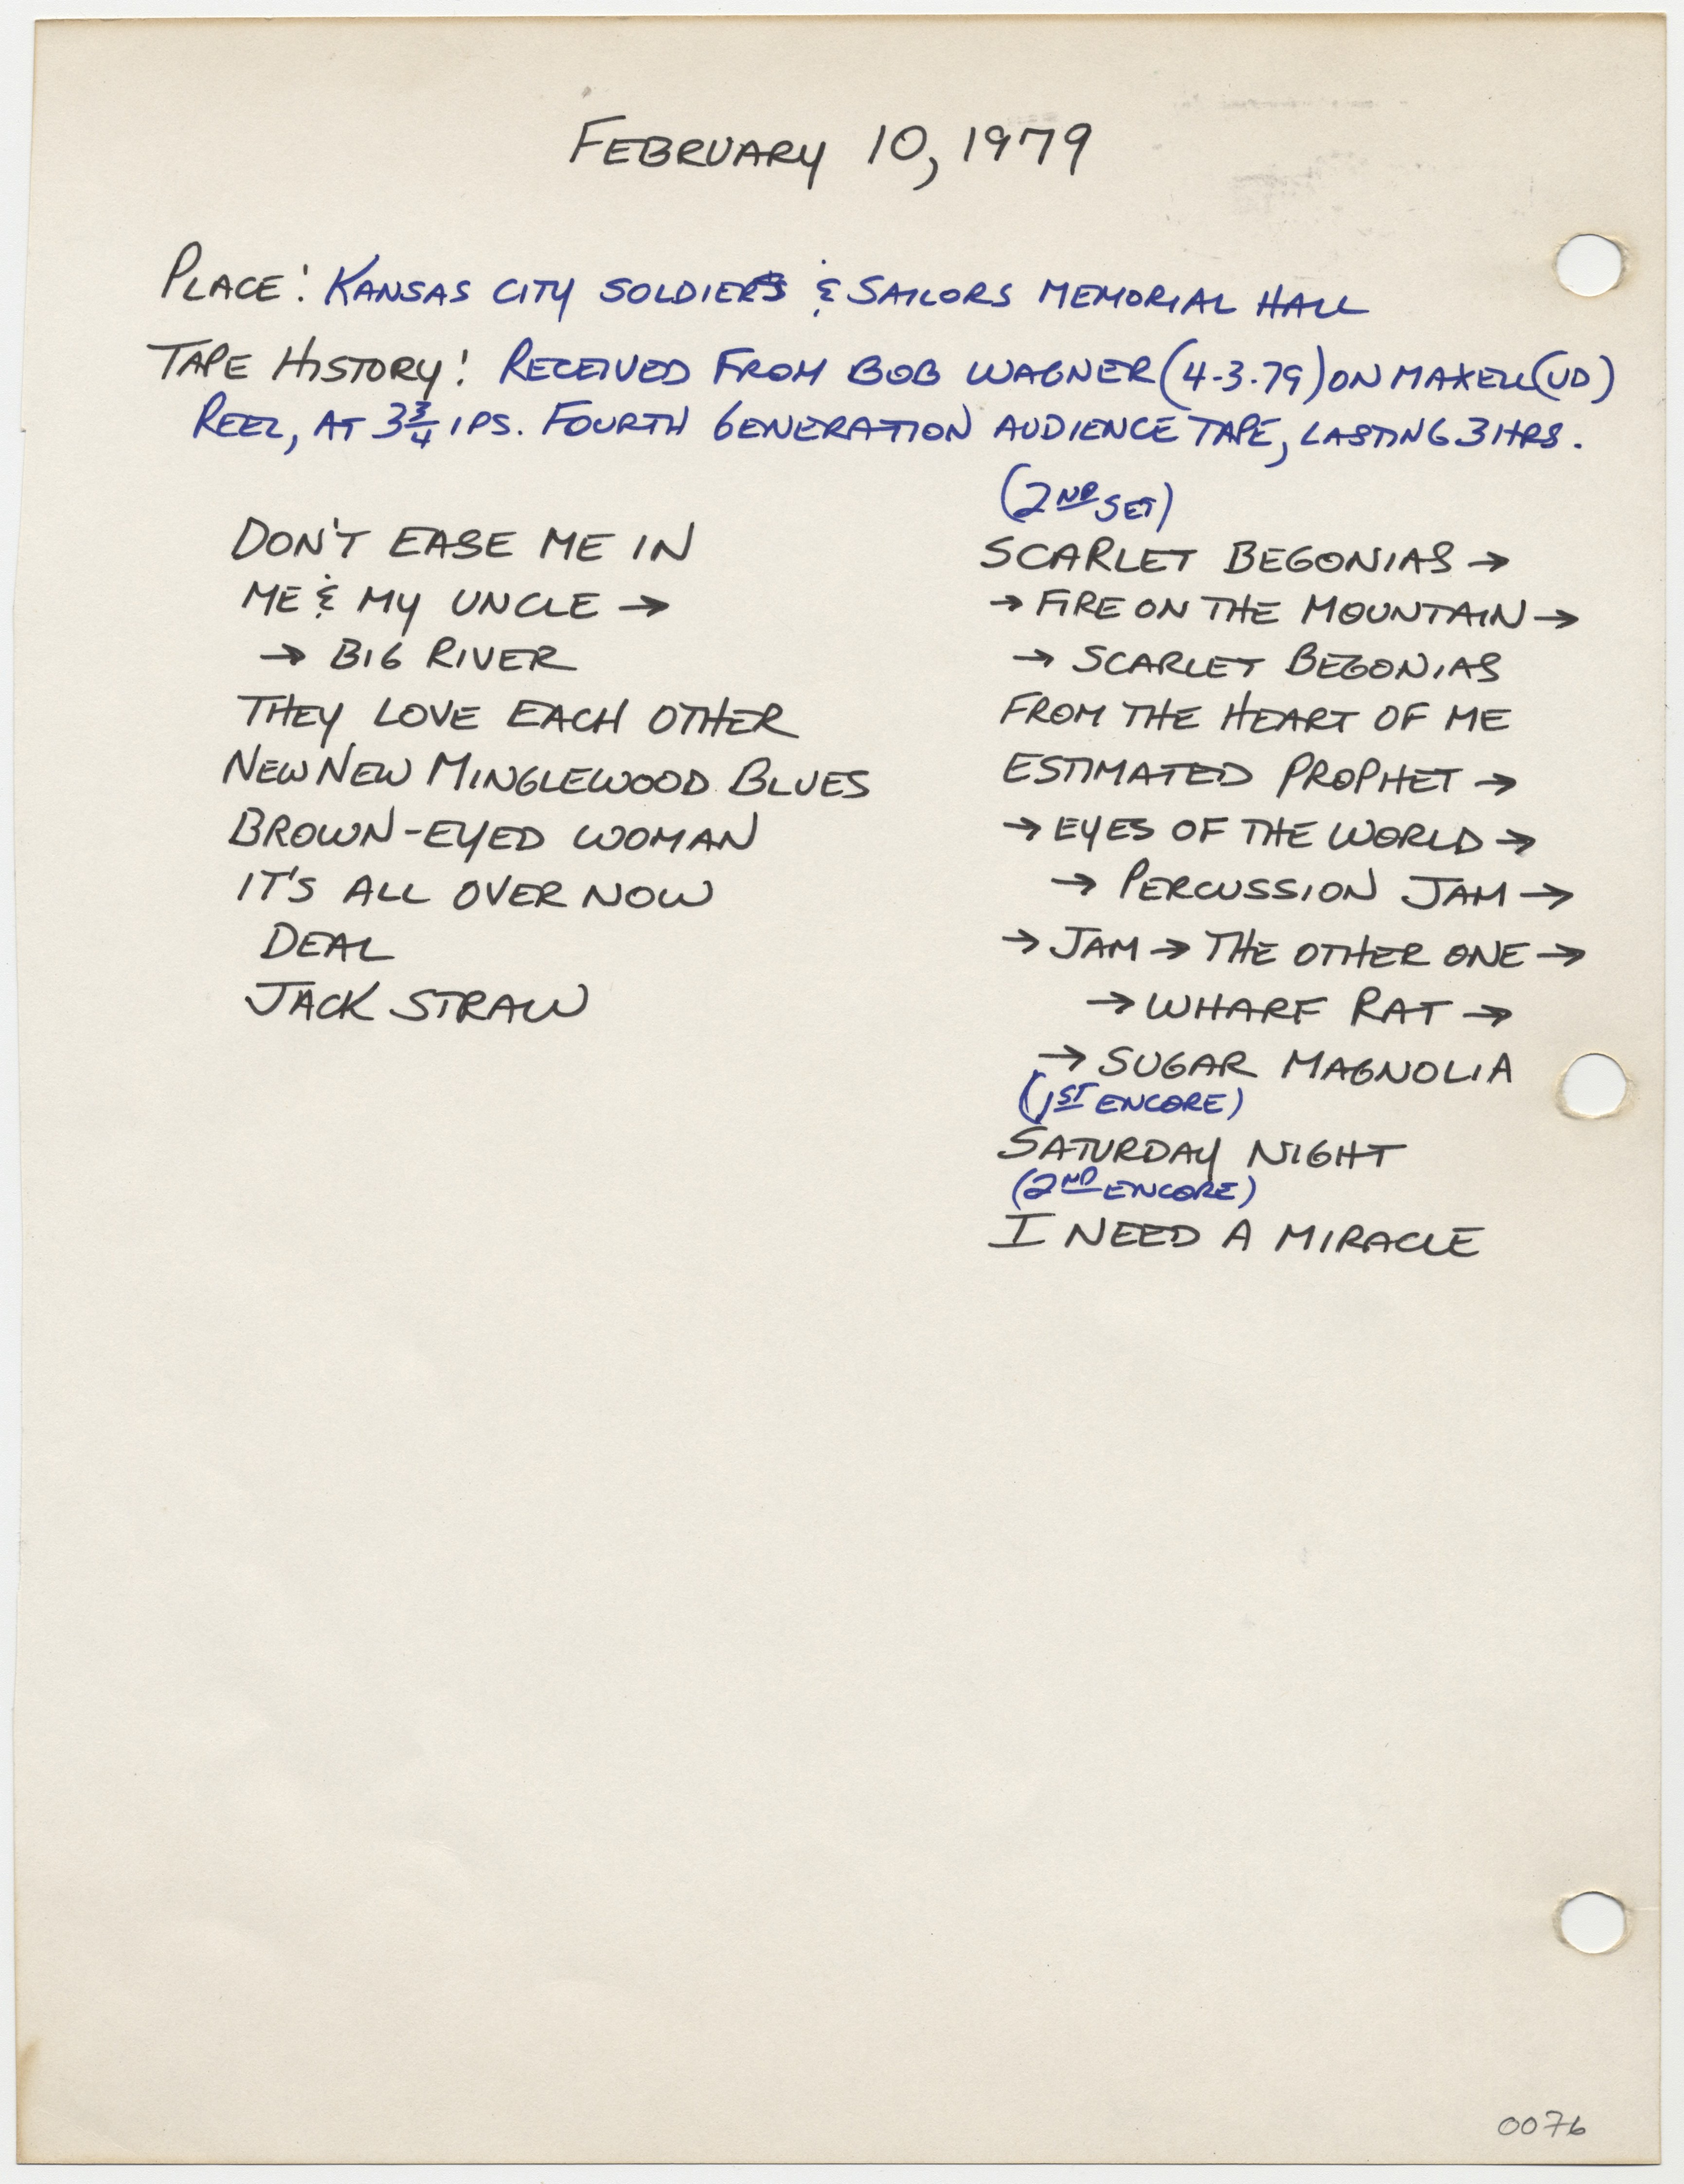 FEBRUARY 10, 1979
PLACE: KANSAS CITY SOLDIERS & SAILORS MEMORIAL HALL
TAPE HISTORY: RECEIVED FROM BOB WAGNER (4-3-79) ON MAXELL (UD)
REEL, AT 3 3/4 IPS. FOURTH GENERATION AUDIENCE TAPE, LASTING 3 HRS.
DON'T EASE ME IN
ME & MY UNCLE →
→ BIG RIVER
THEY LOVE EACH OTHER
NEW NEW MINGLEWOOD BLUES
BROWN-EYED WOMAN
IT'S ALL OVER NOW
DEAL
JACK STRAW
(2ND SET)
SCARLET BEGONIAS →
→ FIRE ON THE MOUNTAIN →
→ SCARLET BEGONIAS
FROM THE HEART OF ME
ESTIMATED PROPHET →
→ EYES OF THE WORLD →
→ PERCUSSION JAM →
→ JAM → THE OTHER ONE →
→ WHARF RAT →
→ SUGAR MAGNOLIA
(1ST ENCORE)
SATURDAY NIGHT
(2ND ENCORE)
I NEED A MIRACLE
0076